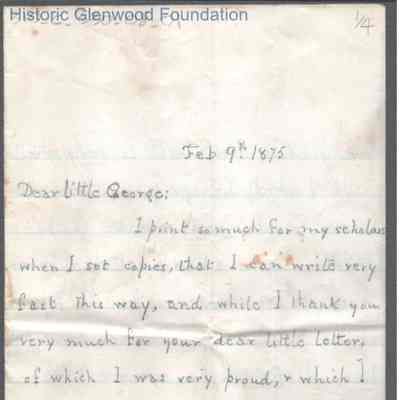 Historic Glenwood Foundation
1/4
Feb 9th 1875
Dear little George:
I print so much for my scholars
when I set copies, that I can write very
fast this way, and while I thank you
very much for your dear little letter,
of which I was very proud, & which I